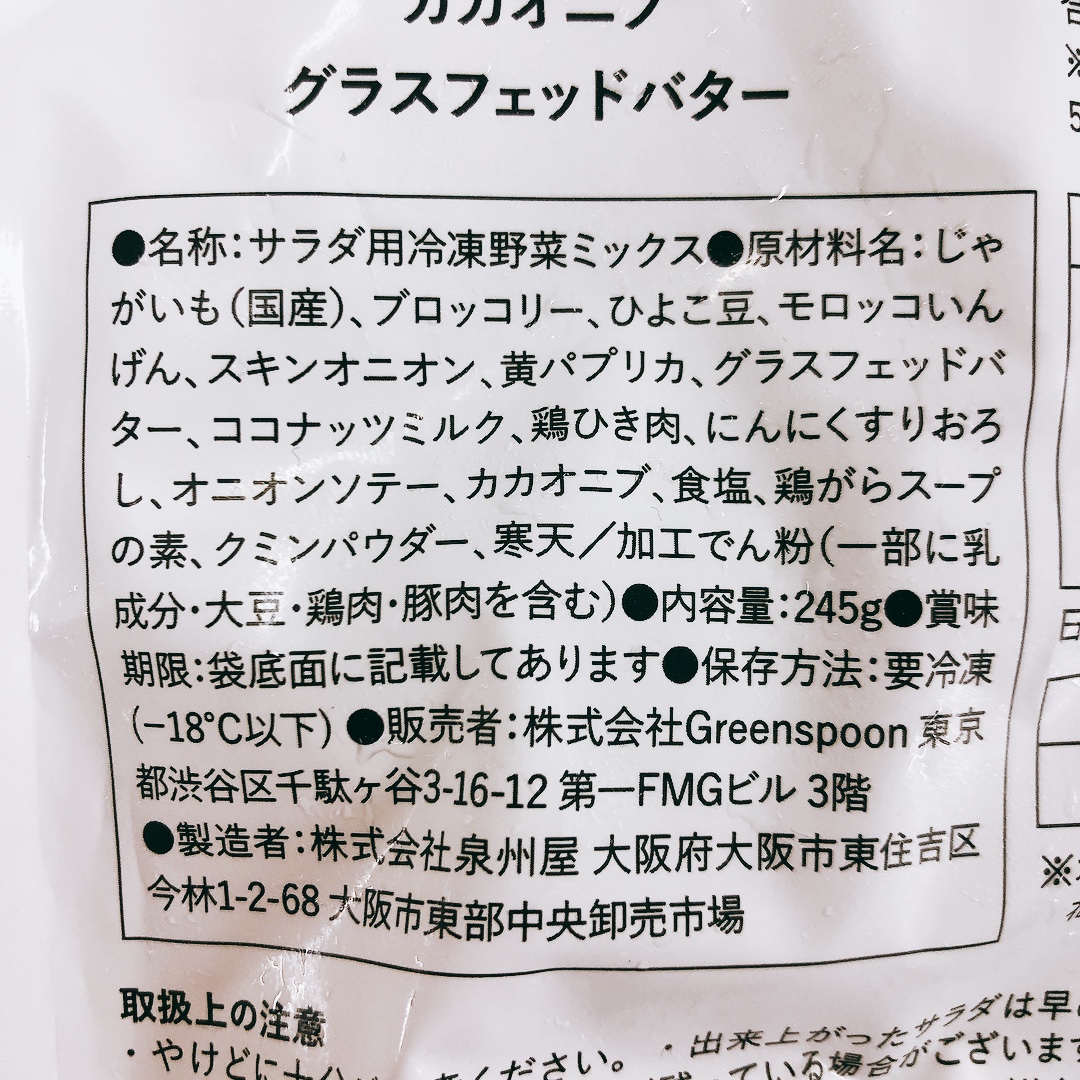 カカオニブ
グラスフェッドバター
●名称：サラダ用冷凍野菜ミックス●原材料名：じゃ
がいも（国産）、ブロッコリー、ひよこ豆、モロッコいん
げん、スキンオニオン、黄パプリカ、グラスフェッドバ
ター、ココナッツミルク、鶏ひき肉、にんにくすりおろ
し、オニオンソテー、カカオニブ、食塩、鶏がらスープ
の素、クミンパウダー、寒天／加工でん粉（一部に乳
成分・大豆・鶏肉・豚肉を含む）●内容量：245g●賞味
期限：袋底面に記載してあります●保存方法：要冷凍
（−18℃以下）●販売者：株式会社Greenspoon 東京
都渋谷区千駄ヶ谷3-16-12 第一FMGビル 3階
●製造者：株式会社泉州屋 大阪府大阪市東住吉区
今林1-2-68 大阪市東部中央卸売市場
取扱上の注意
・やけどに十分 ください。
・出来上がったサラダは早
ている場合がございます